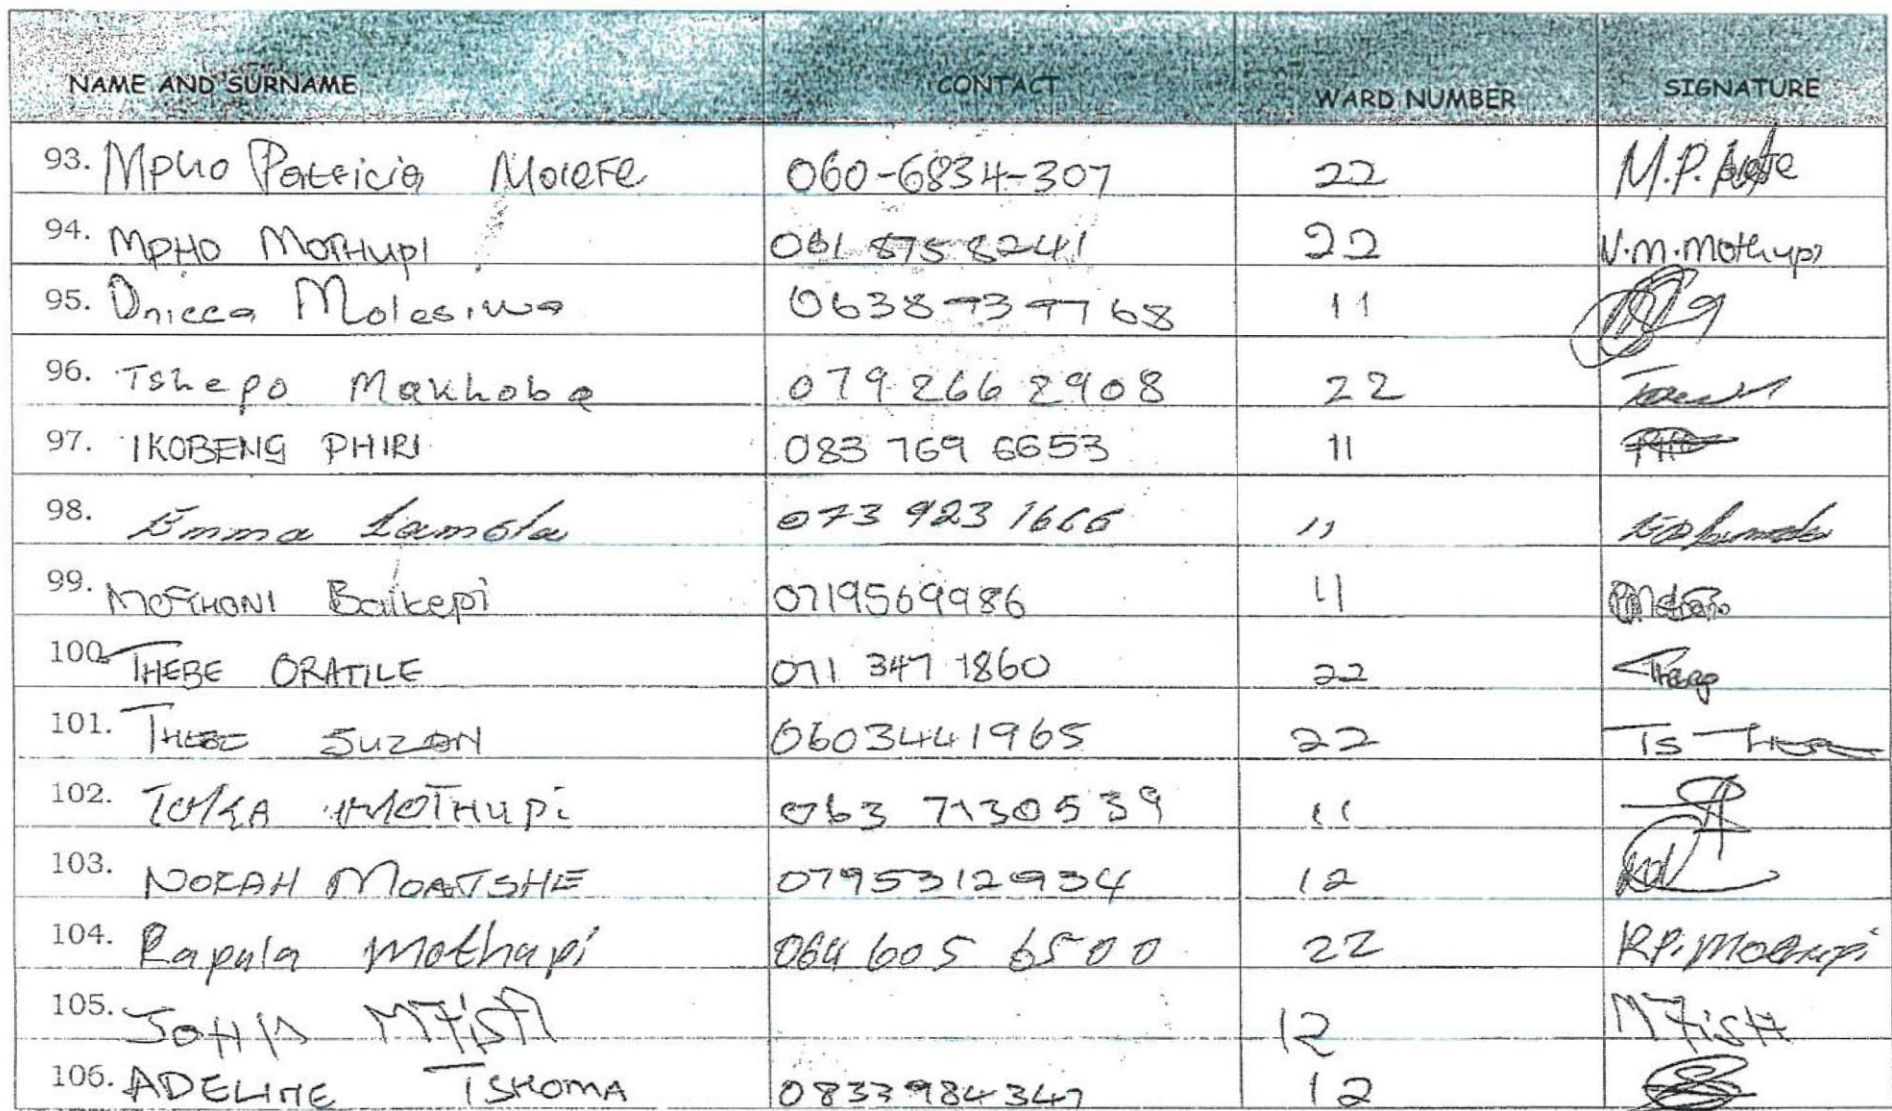 NAME AND SURNAME CONTACT WARD NUMBER SIGNATURE
93. Mpho Patricia Molefe 060-6834-307 22 M.P.
94. MPHO MOTHUPI 061 875 8241 22 V.M.Mothupi
95. Dricca Molesiwa 11
96. Tshepo Makhoba 079 266 2908 22
97. IKOBENG PHIRI 083 769 6653 11
98. Emma Lamola 073 923 1666 11
99. Baikepi 0719569986 11
100. THEBE ORATILE 071 347 1860 22
101. THEBE SUZAN 0603441965 22 TS
102. MOTHUPi 063 7130539 11
103. NORAH MOATSHE 0795312934 12
104. Rapula Mothupi 064 605 6500 22 RP.Mothupi
105. 12
106. ADELINE TSHOMA 0833984347 12